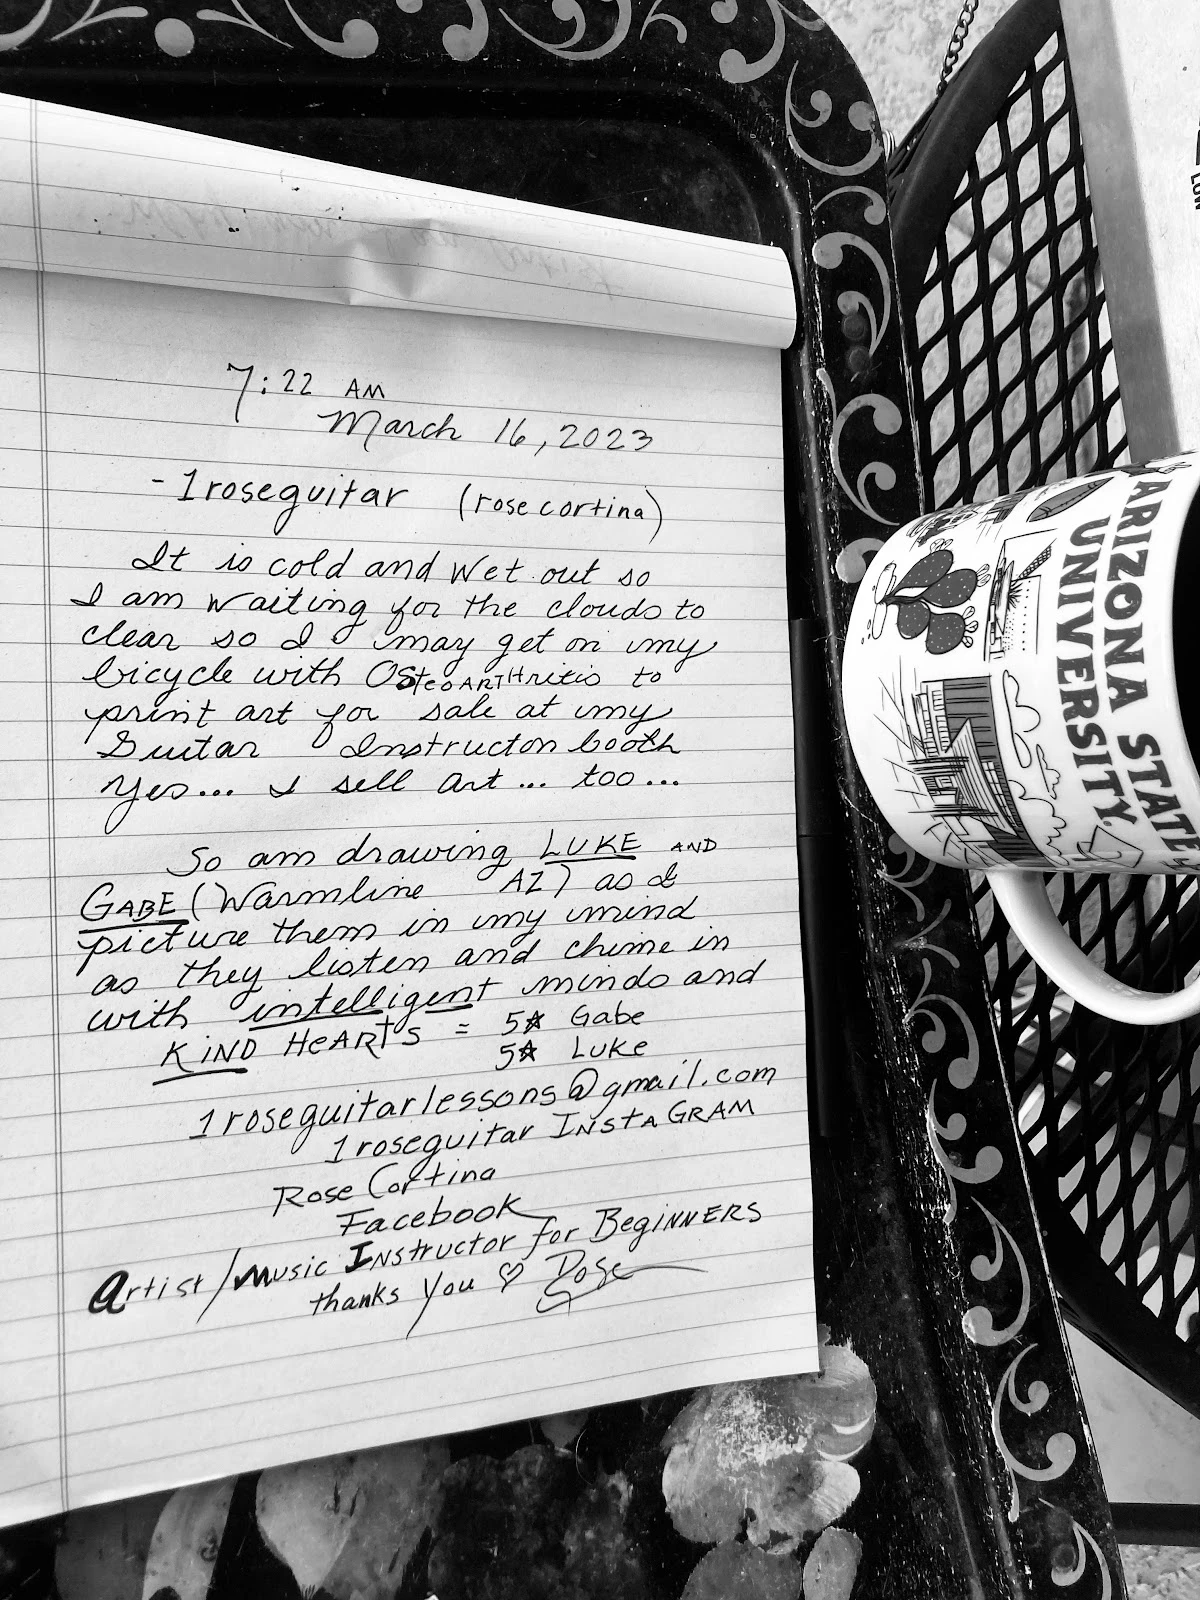 7:22 AM
March 16, 2023
- 1roseguitar (rose cortina)
It is cold and wet out so
I am waiting for the clouds to
clear so I may get on my
bicycle with OSteoARTHritis to
print art for sale at my
Guitar Instructon booth
Yes... I sell art... too...
So am drawing LUKE AND
GABE (Warmline AZ) as I
picture them in my mind
as they listen and chime in
with intelligent minds and
KIND HeARTS = 5☆ Gabe
5☆ Luke
1roseguitarlessons@gmail.com
1roseguitar INSTAGRAM
Rose Cortina
Facebook
Artist/Music Instructor for BegINNERS
thanks You ♡ Rose
ARIZONA STATE
UNIVERSITY
LOW